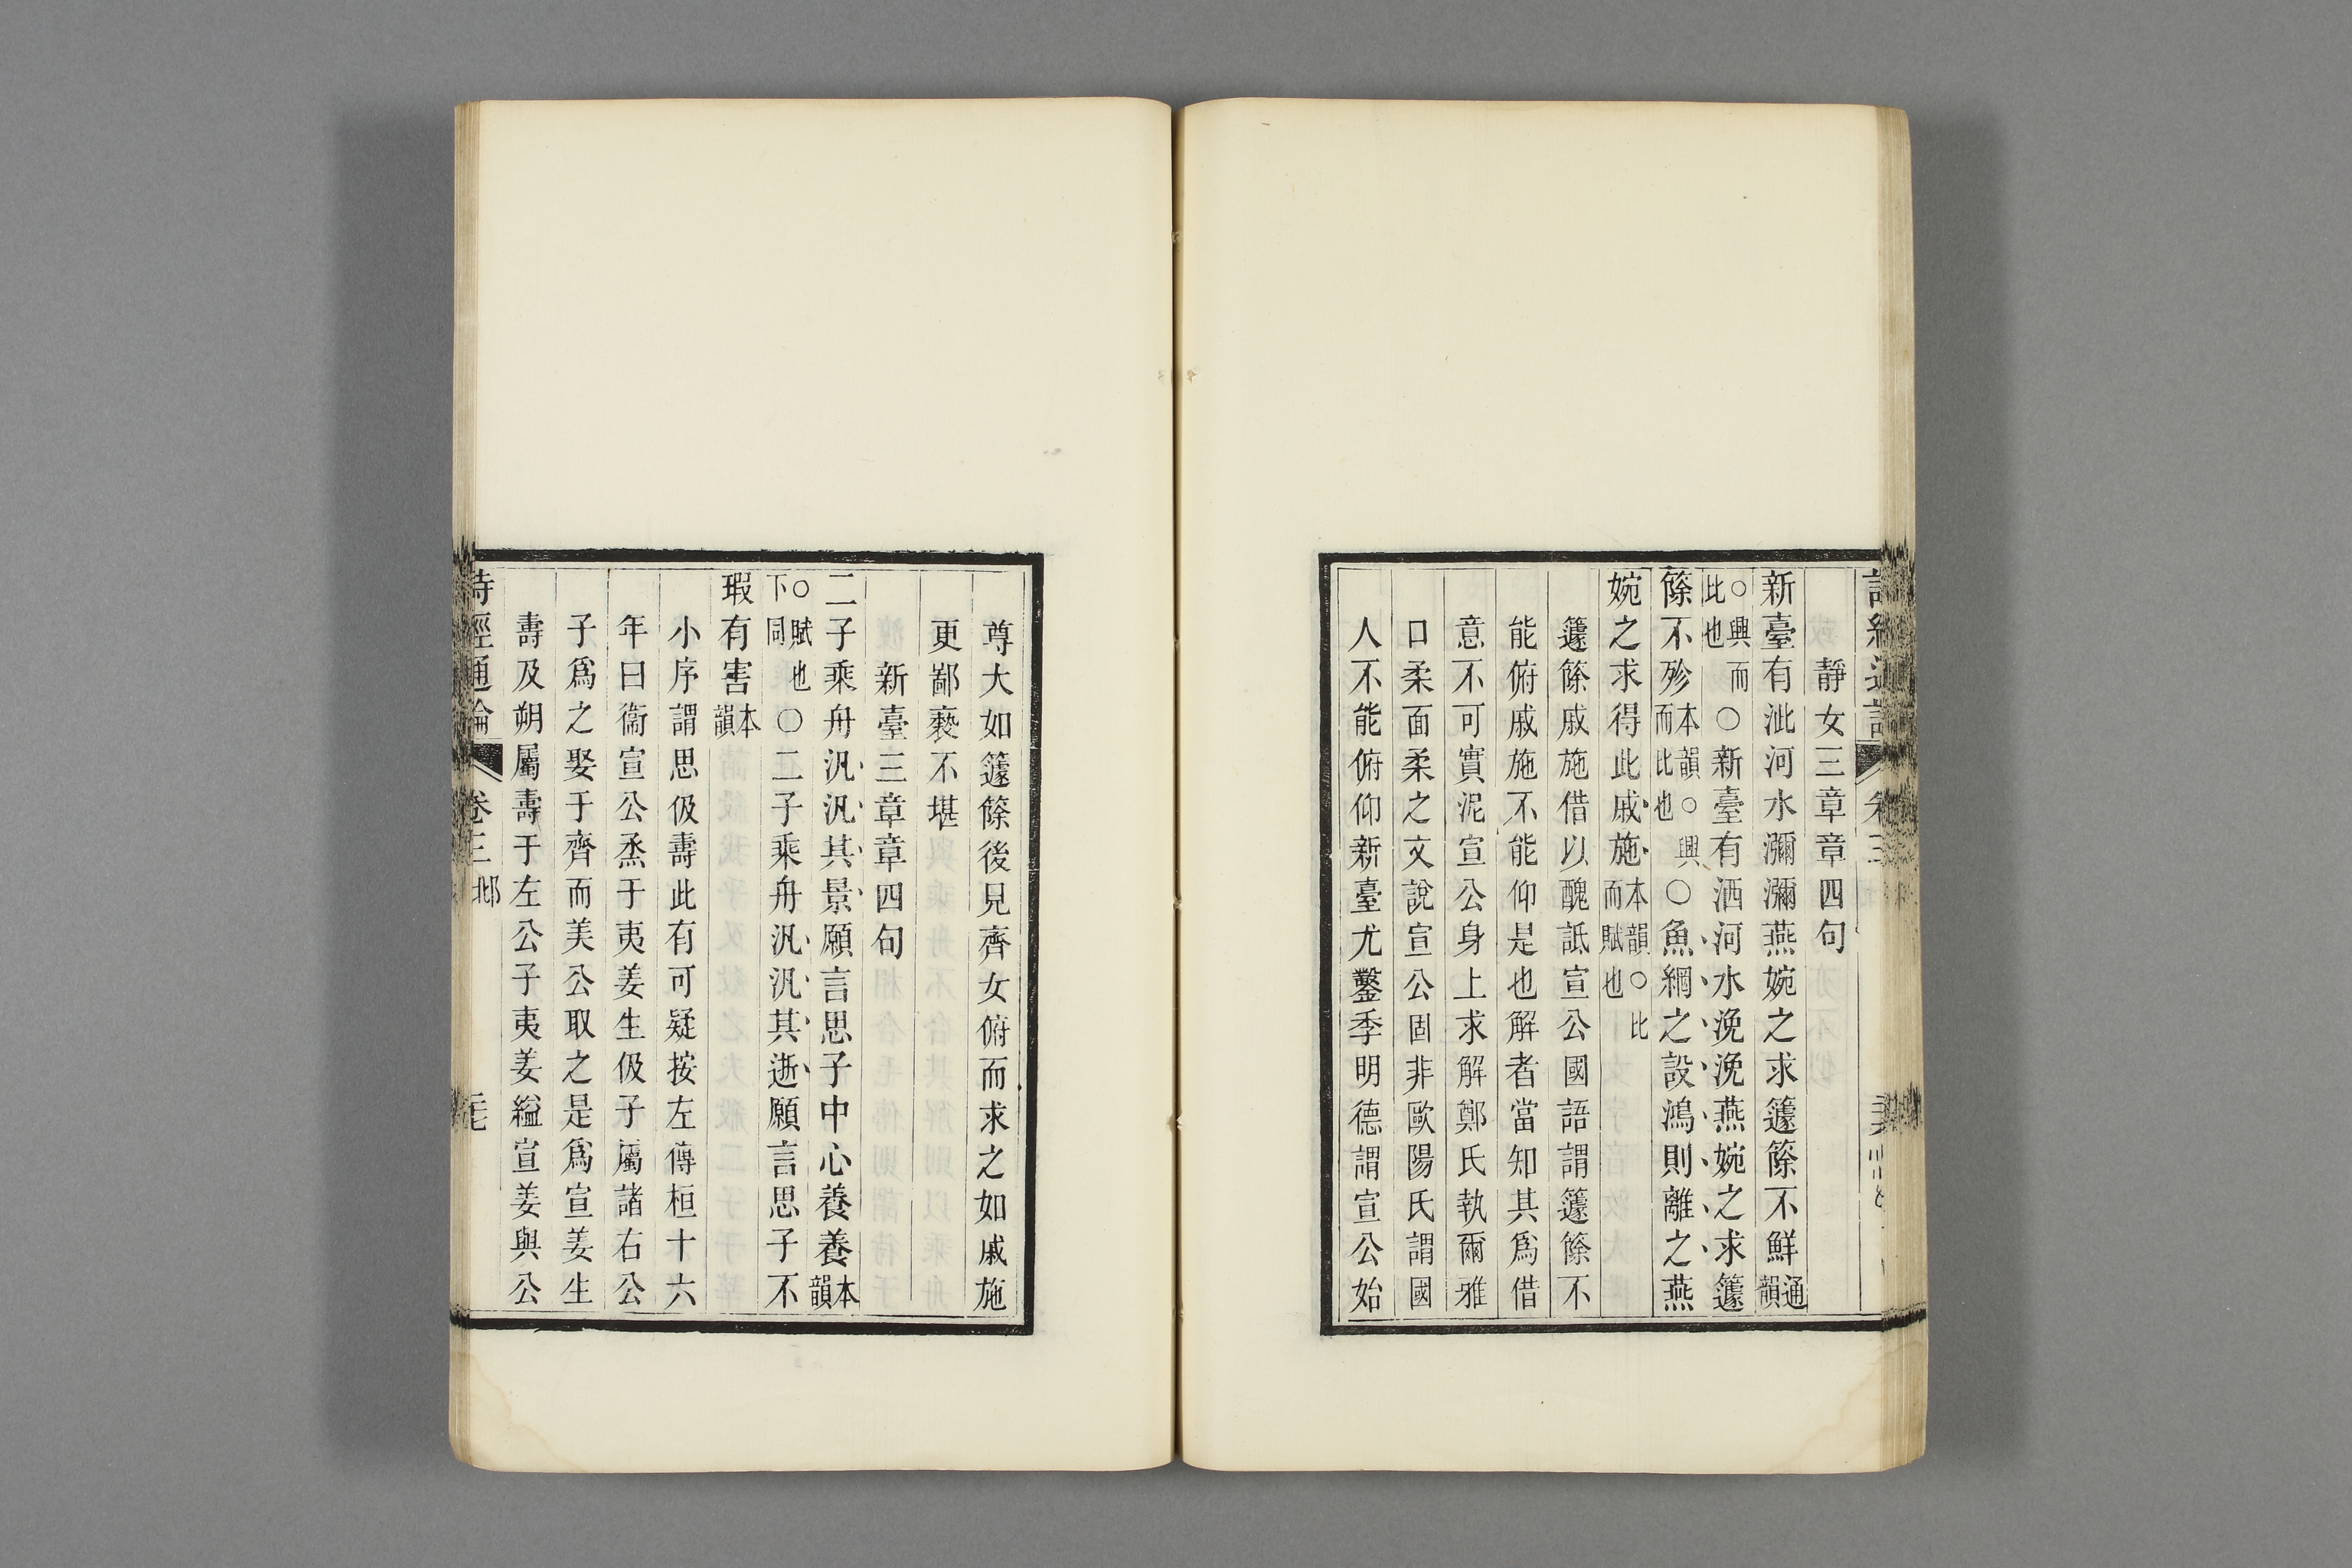 靜女三章章四句
新臺有泚河水瀰瀰燕婉之求籧篨不鮮通韻
○興而比也○新臺有洒河水浼浼燕婉之求籧
篨不殄本韻○興而比也○魚網之設鴻則離之燕
婉之求得此戚施本韻○比而賦也
籧篨戚施借以醜詆宣公國語謂籧篨不
能俯戚施不能仰是也解者當知其爲借
意不可實泥宣公身上求解鄭氏執爾雅
口柔面柔之文說宣公固非歐陽氏謂國
人不能俯仰新臺尤鑿季明德謂宣公始
尊大如籧篨後見齊女俯而求之如戚施
更鄙褻不堪
新臺三章章四句
二子乘舟汎汎其景願言思子中心養養本韻
○賦也下同○二子乘舟汎汎其逝願言思子不
瑕有害本韻
小序謂思伋壽此有可疑按左傳桓十六
年曰衞宣公烝于夷姜生伋子屬諸右公
子爲之娶于齊而美公取之是爲宣姜生
壽及朔屬壽于左公子夷姜縊宣姜與公
詩經通論 卷三 邶